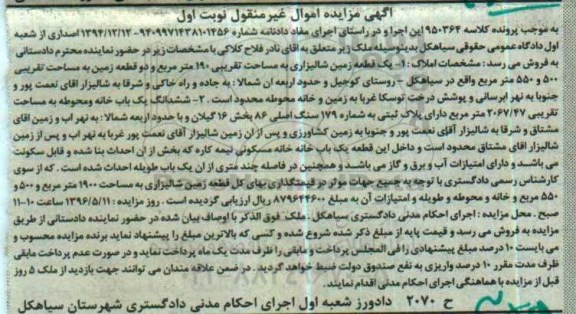 آگهی مزایده اموال غیرمنقول نوبت اول
به موجب پرونده کلاسه 950364 این اجرا و در راستای اجرای مفاد دادنامه شماره 9409971438101456-1394/12/12 اصداری از شعبه
اول دادگاه عمومی حقوقی سیاهکل بدینوسیله ملک زیر متعلق به آقای نادر فلاح کلاکی با مشخصات زیر در حضور نماینده محترم دادستانی
به فروش می رسد: مشخصات املاک: 1- یک قطعه زمین شالیزاری به مساحت تقریبی 190 متر مربع و دو قطعه زمین به مساحت تقریبی
500 و 550 متر مربع واقع در سیاهکل - روستای کوجیل و حدود اربعه آن شمالا: به جاده و راه خاکی و شرقا به شالیزار آقای نعمت پور و
جنوبا به نهر آبرسانی و پوشش درخت توسکا غربا به زمین و خانه محوطه محدود است. 2- ششدانگ یک باب خانه ومحوطه به مساحت
تقریبی 2067/47 متر مربع دارای پلاک ثبتی به شماره 179 سنگ اصلی 86 بخش 16 گیلان و با حدود اربعه شمالا: به نهر آب و زمین آقای
مشتاق و شرقا به شالیزار آقای نعمت پور و جنوبا به زمین کشاورزی و پس از آن زمین شالیزار آقای نعمت پور غربا به نهر آب و پس از زمین
شالیزار آقای مشتاق محدود است و داخل این قطعه یک باب خانه خانه مسکونی نیمه کاره که بخش از آن احداث بنا شده و قابل سکونت
می باشد و دارای امتیازات آب و برق و گاز می باشد و همچنین در فاصله چند متری از آن یک باب طویله احداث شده است. که از سوی
کارشناس رسمی دادگستری با توجه به جمیع جهات موثر در قیمتگذاری بهای کل قطعه زمین شالیزاری به مساحت 1900 متر مربع و 500 و
550 مربع و خانه و محوطه و طویله و امتیازات آن به مبلغ 879644600 ریال ارزیابی گردیده است. روز مزایده: 1396/5/11 ساعت 10-11
صبح. محل مزایده: اجرای احکام مدنی دادگستری سیاهکل. ملک فوق الذکر با اوصاف بیان شده در حضور نماینده دادستانی از طریق
مزایده به فروش می رسد و قیمت پایه از مبلغ ذکر شده شروع شده و کسی که بالاترین مبلغ را پیشنهاد نماید برنده مزایده محسوب و
می بایست 10 درصد مبلغ پیشنهادی را فی المجلس پرداخت و مابقی را ظرف مدت یک ماه پرداخت نماید و در صورت عدم پرداخت مابقی
ظرف مدت مقرر 10 درصد واریزی به نفع صندوق دولت ضبط خواهد گردید. در ضمن علاقه مندان می توانند جهت بازدید از ملک 5 روز
قبل از مزایده با هماهنگی اجرای احکام مدنی اقدام نمایند.
ح 2070 دادورز شعبه اول اجرای احکام مدنی دادگستری شهرستان سیاهکل